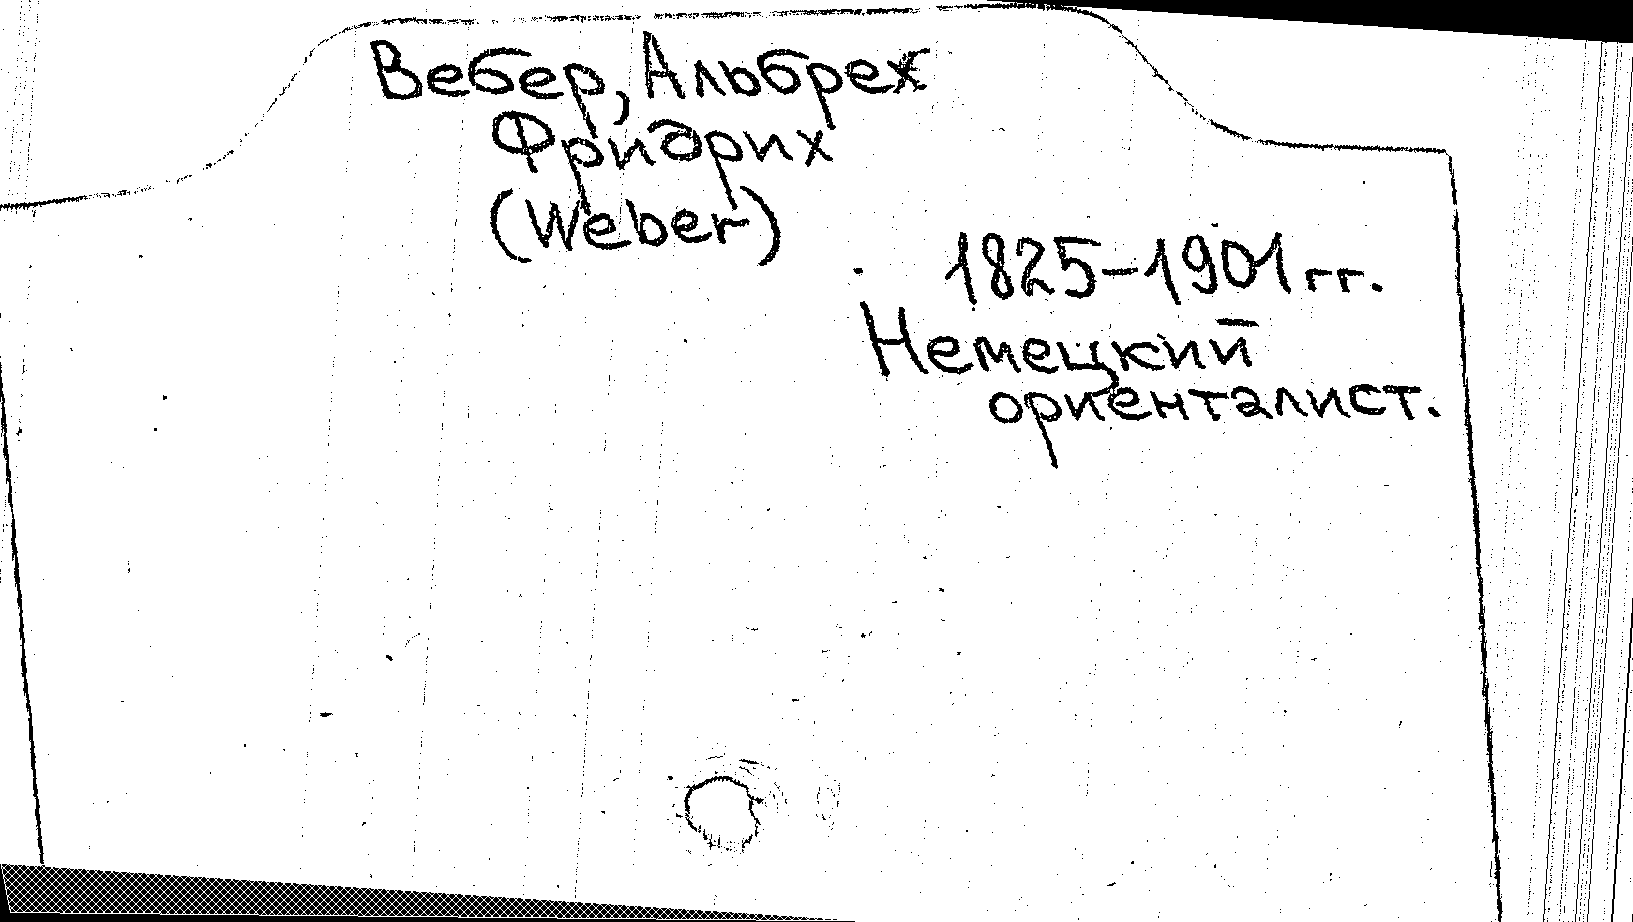 Вебер, Альбрех
Фридрих
(Weber)
1825-1901 гг.
Немецкий
ориенталист.